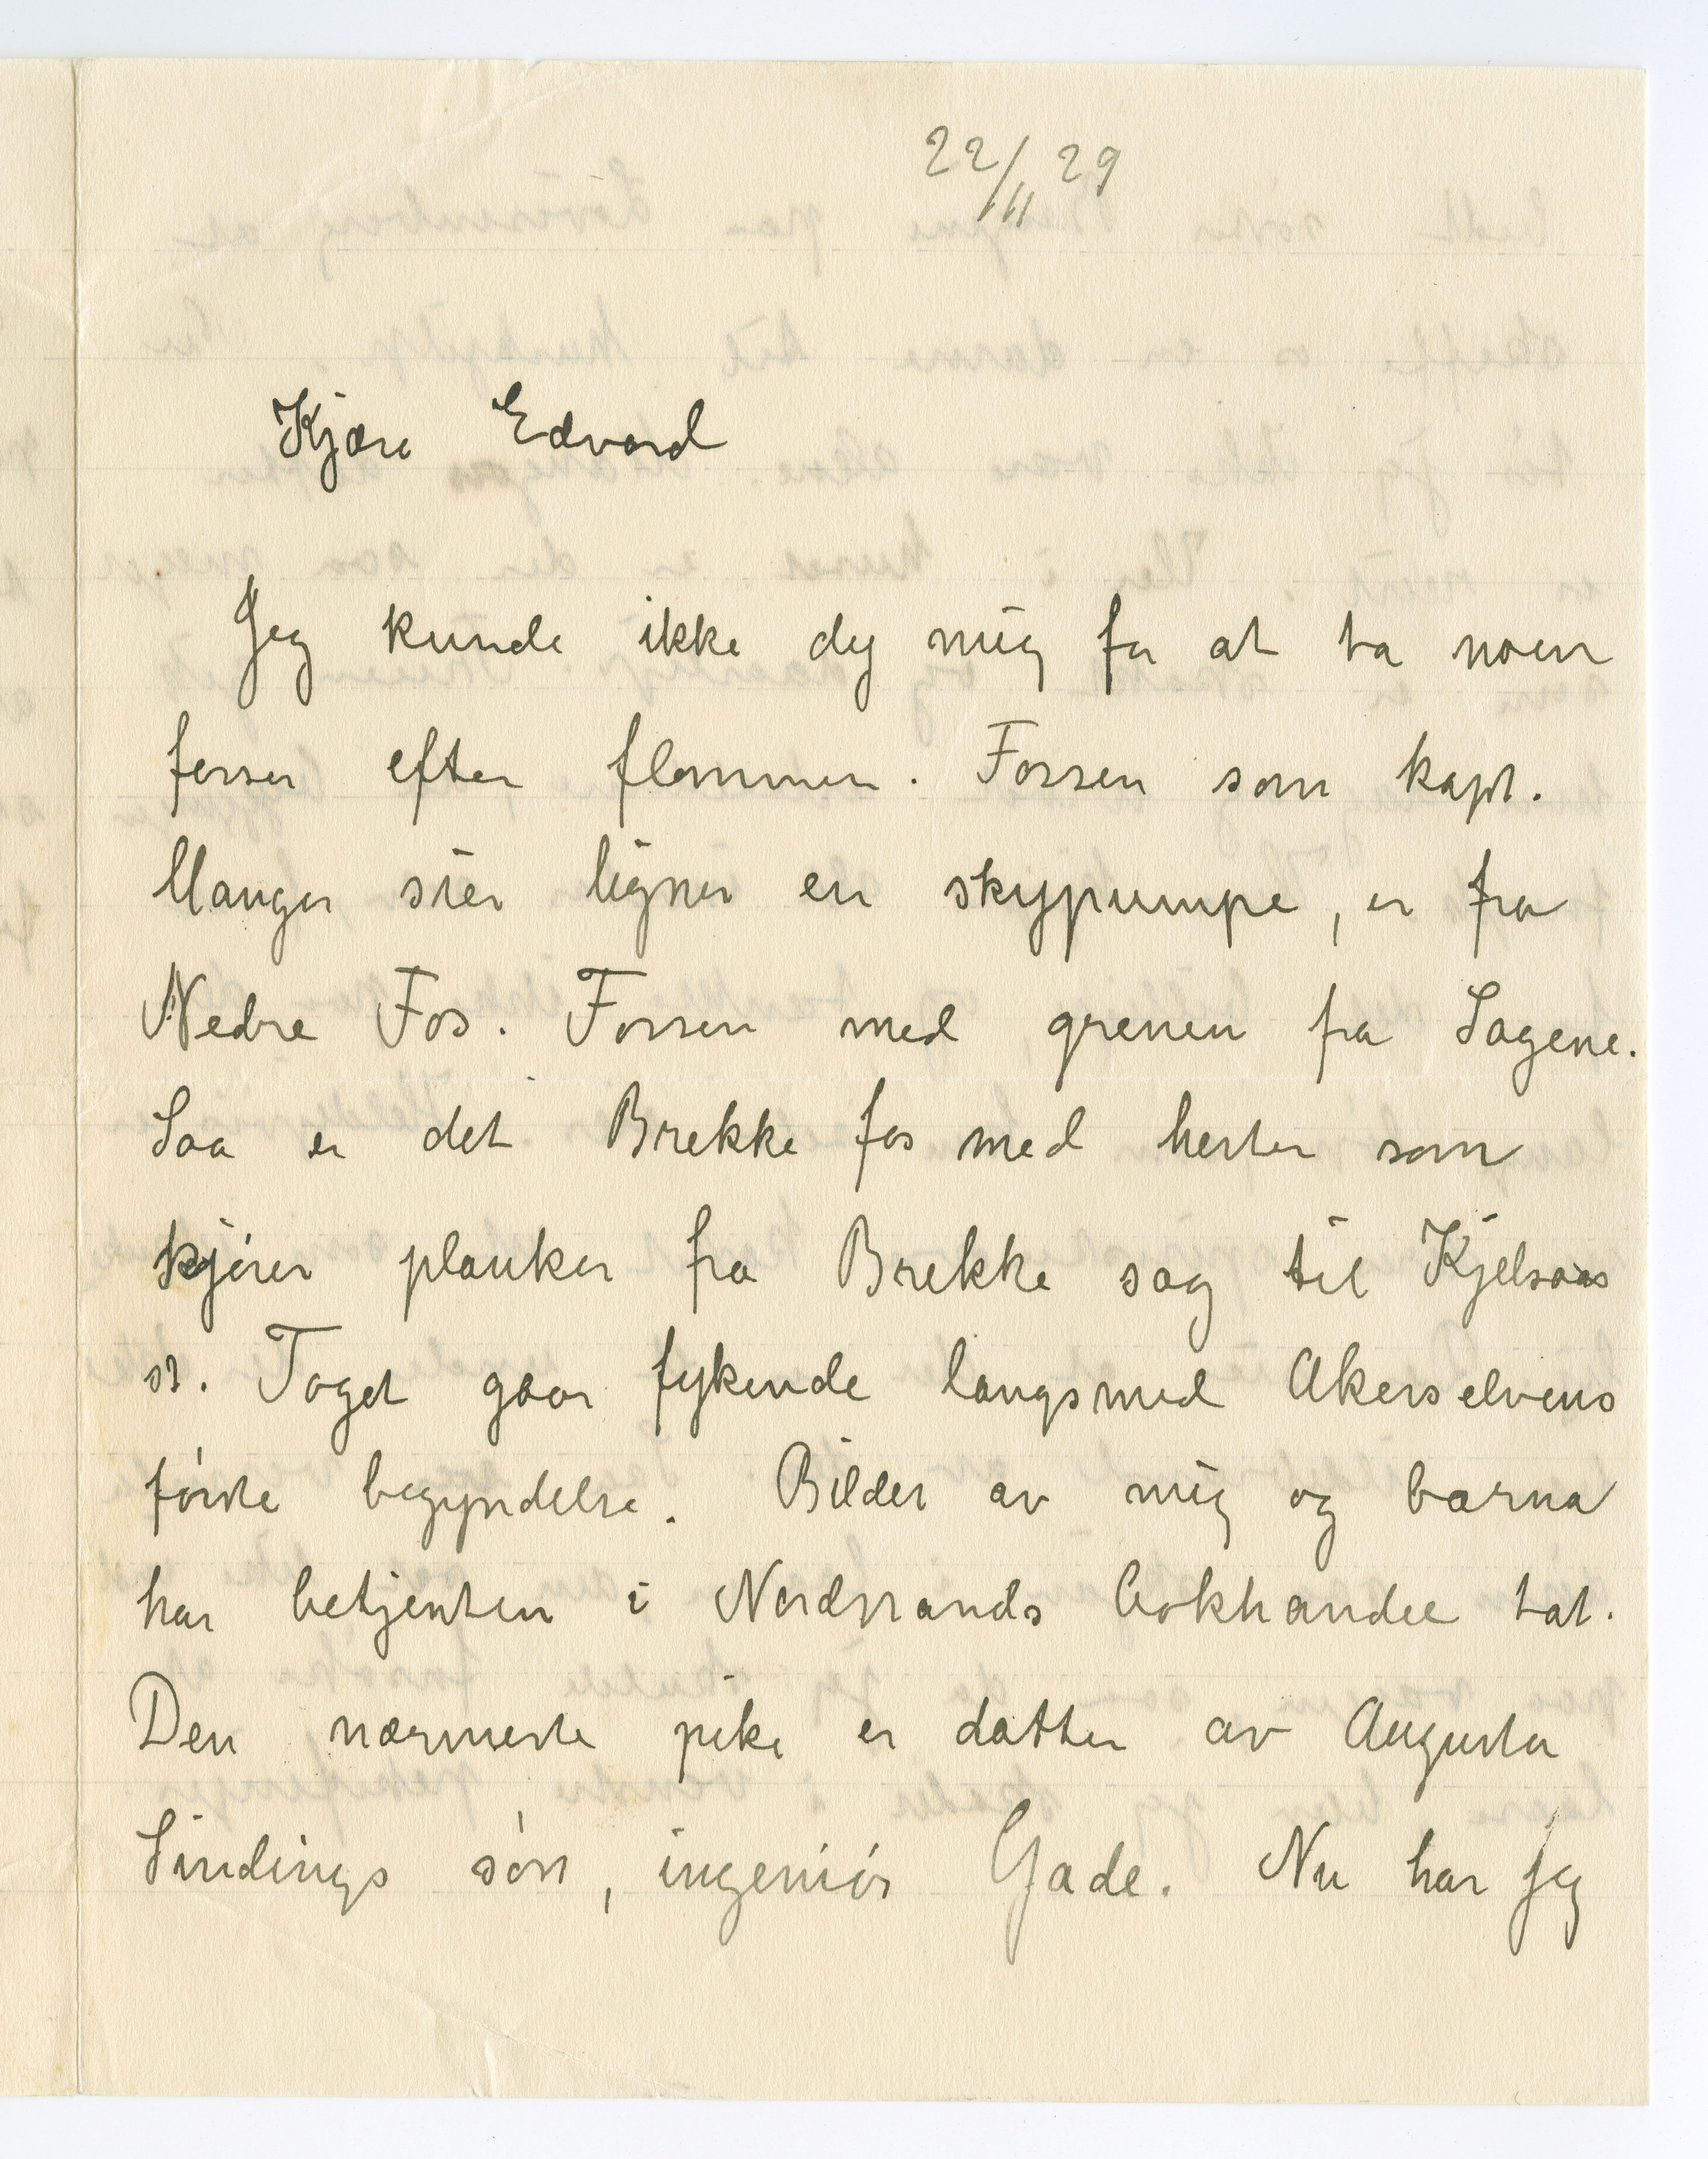 22/11 29
Kjære Edvard
Jeg kunde ikke dy mig for at ta noen
fosser efter flommen. Fossen som kapt.
Manger sier ligner en skypumpe, er fra
Nedre Fos. Fossen med grenen fra Sagene.
Saa er det Brekke fos med hester som
kjører planker fra Brekke sag til Kjelsaas
st. Toget gaar fykende langsmed Akerselvens
første begyndelse. Bilder av mig og barna
har betjenten i Nordstrands bokhandel tat.
Den nærmeste pike er datter av Augusta
Sindings søn, ingeniør Gade. Nu har jeg